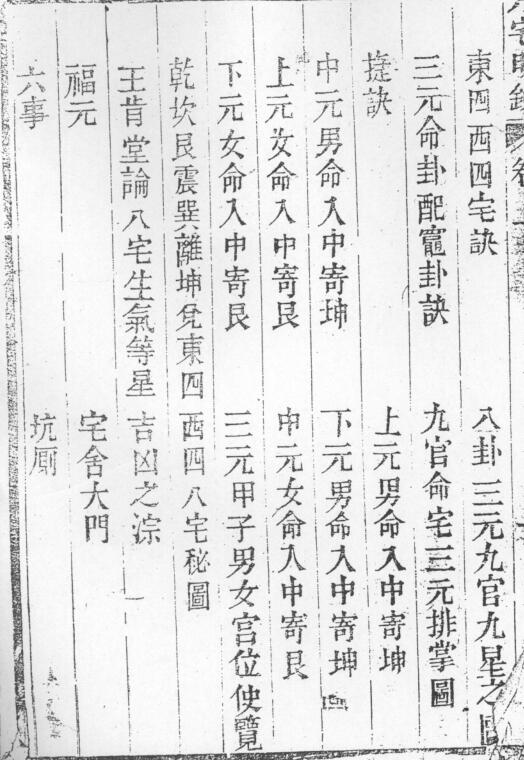 八宅明鏡 卷上
東四西四宅訣 八卦三元九宫九星之圖
三元命卦配竈卦訣 九宫命宅三元排掌圖
捷訣 上元男命入中寄坤
中元男命入中寄坤 下元男命入中寄坤
上元女命入中寄艮 中元女命入中寄艮
下元女命入中寄艮 三元甲子男女宫位便覽
乾坎艮震巽離坤兌東四 西四八宅秘圖
王肯堂論八宅生氣等星 吉凶之淙
福元 宅舍大門
六事 坑厠